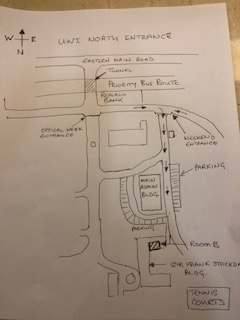 UWI NORTH ENTRANCE
W E
N
EASTERN MAIN ROAD
TUNNEL
PRIORITY BUS ROUTE
REPUBLIC
BANK
OFFICAL WEEK
ENTRANCE
WEEKEND
ENTRANCE
PARKING
MAIN
ADMIN
BLDG.
PARKING
ROOM B
SIR FRANK STOCKDALE
BLDG.
TENNIS
COURTS